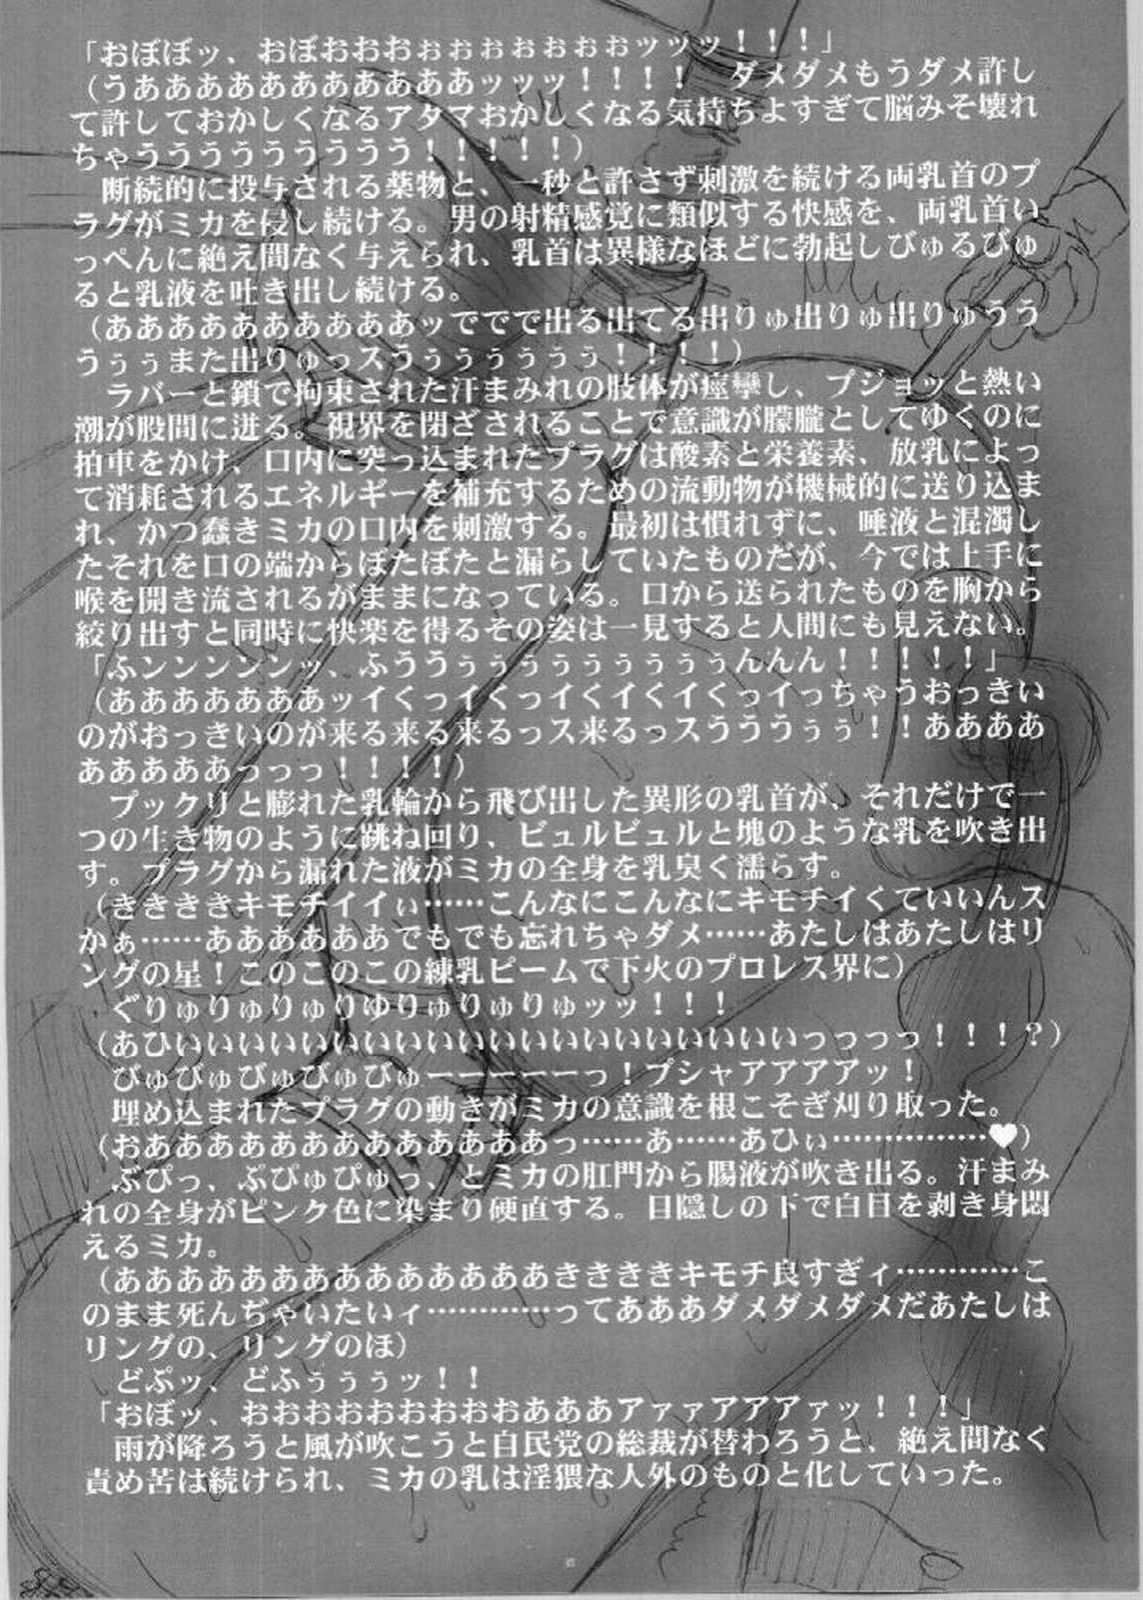 「おぼぼッ、おぼおおおぉぉぉぉぉぉぉッッッ！！！」
（うああああああああああああッッッ！！！！　ダメダメもうダメ許し
て許しておかしくなるアタマおかしくなる気持ちよすぎて脳みそ壊れ
ちゃうううううううううう！！！！！）
　断続的に投与される薬物と、一秒と許さず刺激を続ける両乳首のプ
ラグがミカを侵し続ける。男の射精感覚に類似する快感を、両乳首い
っぺんに絶え間なく与えられ、乳首は異様なほどに勃起しびゅるびゅ
ると乳液を吐き出し続ける。
（ああああああああああッででで出る出てる出りゅ出りゅ出りゅうう
うぅぅまた出りゅっスうぅぅぅぅぅぅ！！！！）
　ラバーと鎖で拘束された汗まみれの肢体が痙攣し、プジョッと熱い
潮が股間に迸る。視界を閉ざされることで意識が朦朧としてゆくのに
拍車をかけ、口内に突っ込まれたプラグは酸素と栄養素、放乳によっ
て消耗されるエネルギーを補充するための流動物が機械的に送り込ま
れ、かつ蠢きミカの口内を刺激する。最初は慣れずに、唾液と混濁し
たそれを口の端からぼたぼたと漏らしていたものだが、今では上手に
喉を開き流されるがままになっている。口から送られたものを胸から
絞り出すと同時に快楽を得るその姿は一見すると人間にも見えない。
「ふンンンンンッ、ふううぅぅぅぅぅぅぅぅぅんんん！！！！！」
（あああああああッイくっイくっイくイくイくっイっちゃうおっきい
のがおっきいのが来る来る来るっス来るっスうううぅぅ！！ああああ
ああああああっっっ！！！！）
　プックリと膨れた乳輪から飛び出した異形の乳首が、それだけで一
つの生き物のように跳ね回り、ビュルビュルと塊のような乳を吹き出
す。プラグから漏れた液がミカの全身を乳臭く濡らす。
（ききききキモチイイぃ……こんなにこんなにキモチイくていいんス
かぁ……あああああああでもでも忘れちゃダメ……あたしはあたしはリ
ングの星！このこのこの練乳ビームで下火のプロレス界に）
　ぐりゅりゅりゅりゆりゅりゅりゅッッ！！！
（あひぃいいいいいいいいいいいいいいいいいいいいっっっっ！！！？）
　びゅびゅびゅびゅびゅーーーーーっ！プシャアアアアッ！
　埋め込まれたプラグの動きがミカの意識を根こそぎ刈り取った。
（おああああああああああああああっ……あ……あひぃ……………♥）
　ぶぴっ、ぷぴゅぴゅっ、とミカの肛門から腸液が吹き出る。汗まみ
れの全身がピンク色に染まり硬直する。目隠しの下で白目を剥き身悶
えるミカ。
（ああああああああああああああききききキモチ良すぎィ…………こ
のまま死んぢゃいたいィ…………ってあああダメダメダメだあたしは
リングの、リングのほ）
　どぷッ、どふぅぅぅッ！！
「おぼッ、おおおおおおおおおあああアァァアアアァッ！！！」
　雨が降ろうと風が吹こうと自民党の総裁が替わろうと、絶え間なく
責め苦は続けられ、ミカの乳は淫猥な人外のものと化していった。